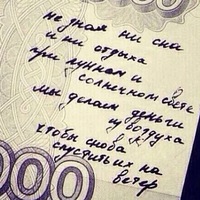 не зная ни сна
и ни отдыха
при лунном и
солнечном свете
мы делаем деньги
из воздуха
чтобы снова
спустить их на
ветер
000